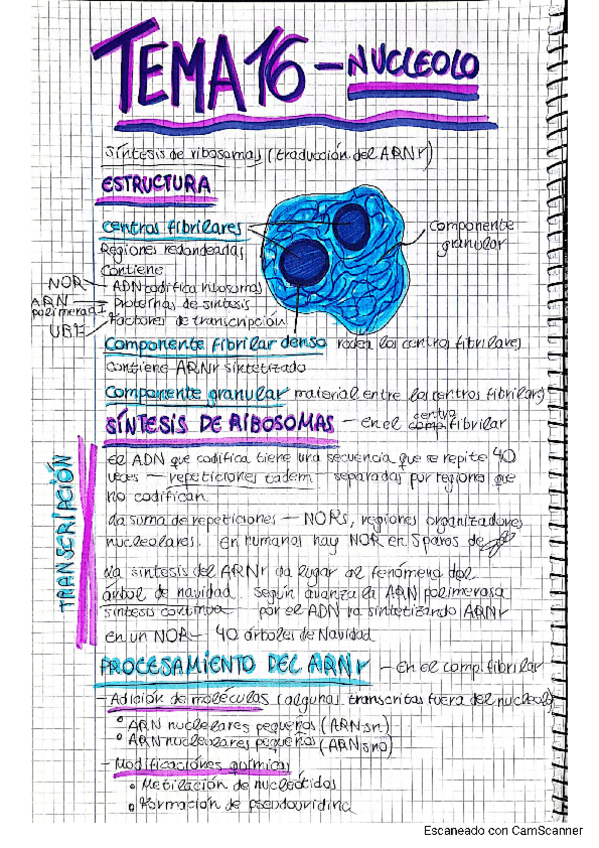 TEMA 16 - NUCLEOLO
Síntesis de ribosomas (traducción del ARNr)
ESTRUCTURA
centros fibrilares
Componente granular
Regiones redondeadas
Contiene
NOR — ADN codifica ribosomas
ARN polimerasa I — Proteínas de síntesis
UBF — Factores de transcripción
Componente fibrilar denso rodea los centros fibrilares
Contiene ARNr sintetizado
Componente granular material entre los centros fibrilares
SÍNTESIS DE RIBOSOMAS - en el centro fibrilar
TRANSCRIPCIÓN
el ADN que codifica tiene una secuencia que se repite 40
veces - repeticiones tadem - separadas por regiones que
no codifican
La suma de repeticiones - NORs, regiones organizadores
nucleolares. en humanos hay NOR en 5 pares de
La síntesis del ARNr da lugar al fenómeno del
árbol de navidad. según avanza la ARN polimerasa
síntesis continua por el ADN va sintetizando ARNr
en un NOR - 40 árboles de Navidad
PROCESAMIENTO DEL ARNr - en el comp. fibrilar
- Adición de moléculas (algunas transcritas fuera del nucleolo)
• ARN nucleares pequeños (ARNsn)
• ARN nucleolares pequeños (ARNsno)
- Modificaciones químicas
• Metilación de nucleótidos
• Formación de pseudouridina
Escaneado con CamScanner